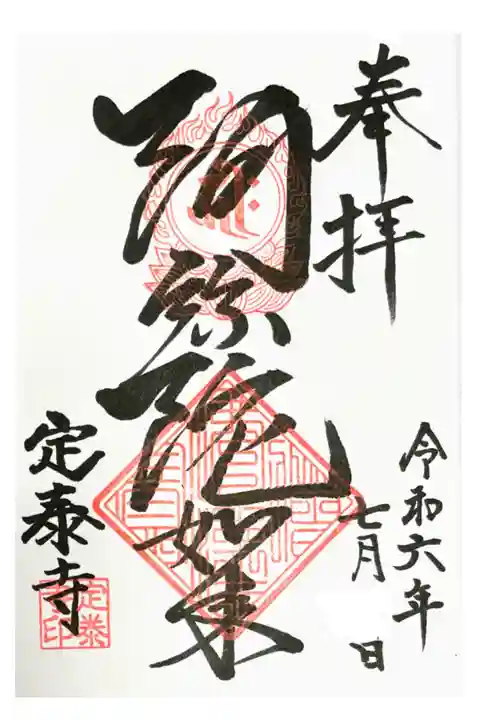 奉拝
令和六年
七月 日
阿弥陀如来
定泰寺
定泰寺印